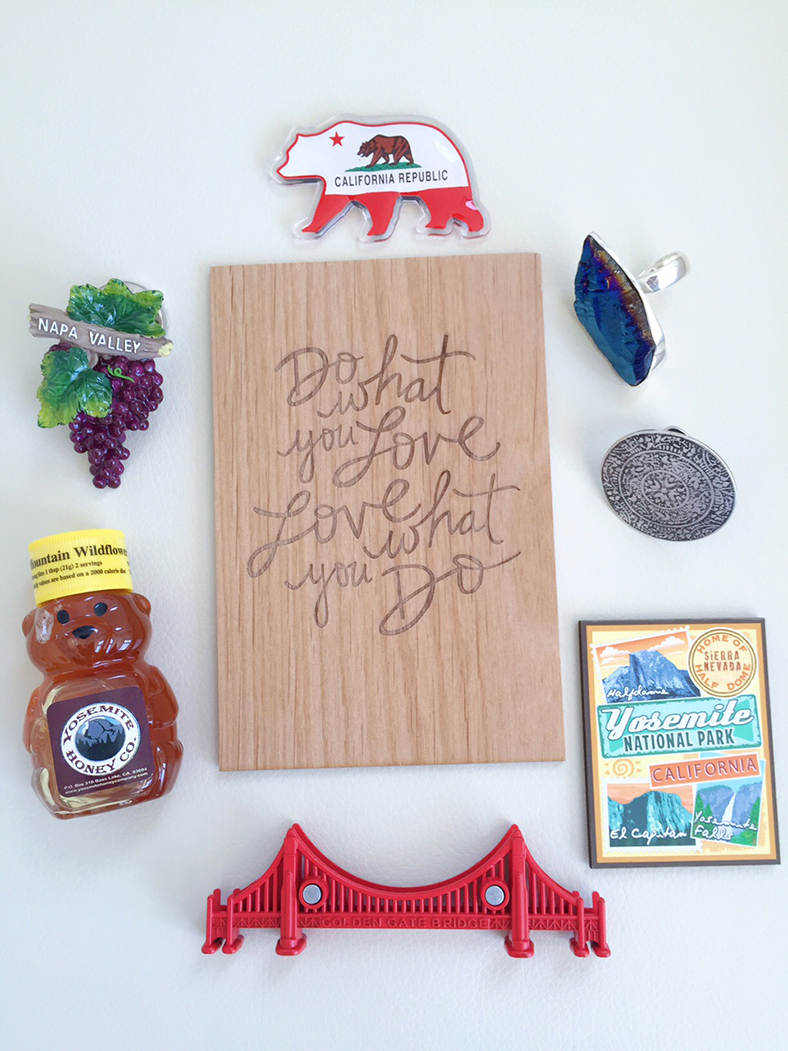 CALIFORNIA REPUBLIC
NAPA VALLEY
Do what
you Love
Love what
you Do
Mountain Wildflower
1 tbsp (21g) 2 servings
values are based on a 2000 calorie diet
YOSEMITE
HONEY CO.
P.O. Box 318 Bass Lake, CA. 93604
www.yosemitehoneycompany.com
HOME OF
SIERRA
NEVADA
HALF DOME
Halfdome
Yosemite
NATIONAL PARK
CALIFORNIA
El Capitan
Yosemite
Falls
GOLDEN GATE BRIDGE